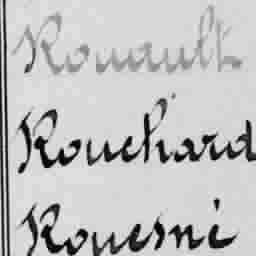 Rouault
Rouchard
Rouesné